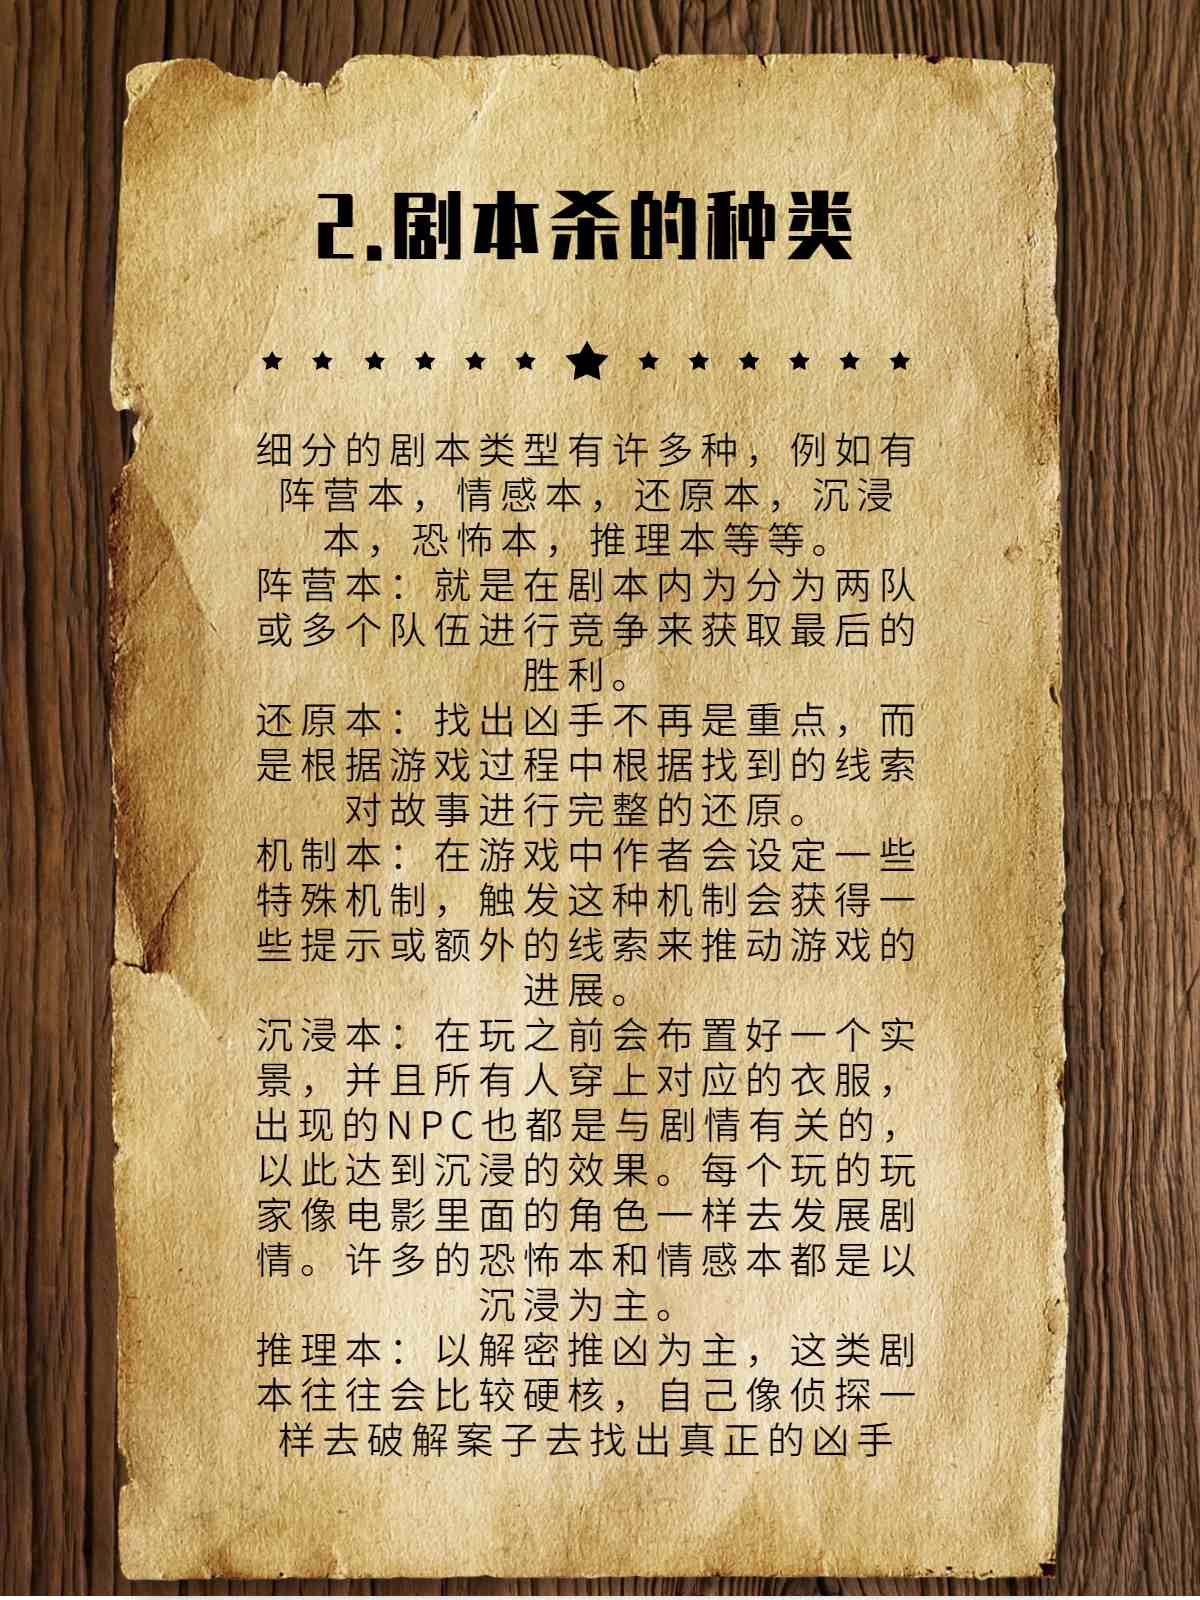 2.剧本杀的种类
细分的剧本类型有许多种，例如有
阵营本，情感本，还原本，沉浸
本，恐怖本，推理本等等。
阵营本：就是在剧本内为分为两队
或多个队伍进行竞争来获取最后的
胜利。
还原本：找出凶手不再是重点，而
是根据游戏过程中根据找到的线索
对故事进行完整的还原。
机制本：在游戏中作者会设定一些
特殊机制，触发这种机制会获得一
些提示或额外的线索来推动游戏的
进展。
沉浸本：在玩之前会布置好一个实
景，并且所有人穿上对应的衣服，
出现的NPC也都是与剧情有关的，
以此达到沉浸的效果。每个玩的玩
家像电影里面的角色一样去发展剧
情。许多的恐怖本和情感本都是以
沉浸为主。
推理本：以解密推凶为主，这类剧
本往往会比较硬核，自己像侦探一
样去破解案子去找出真正的凶手